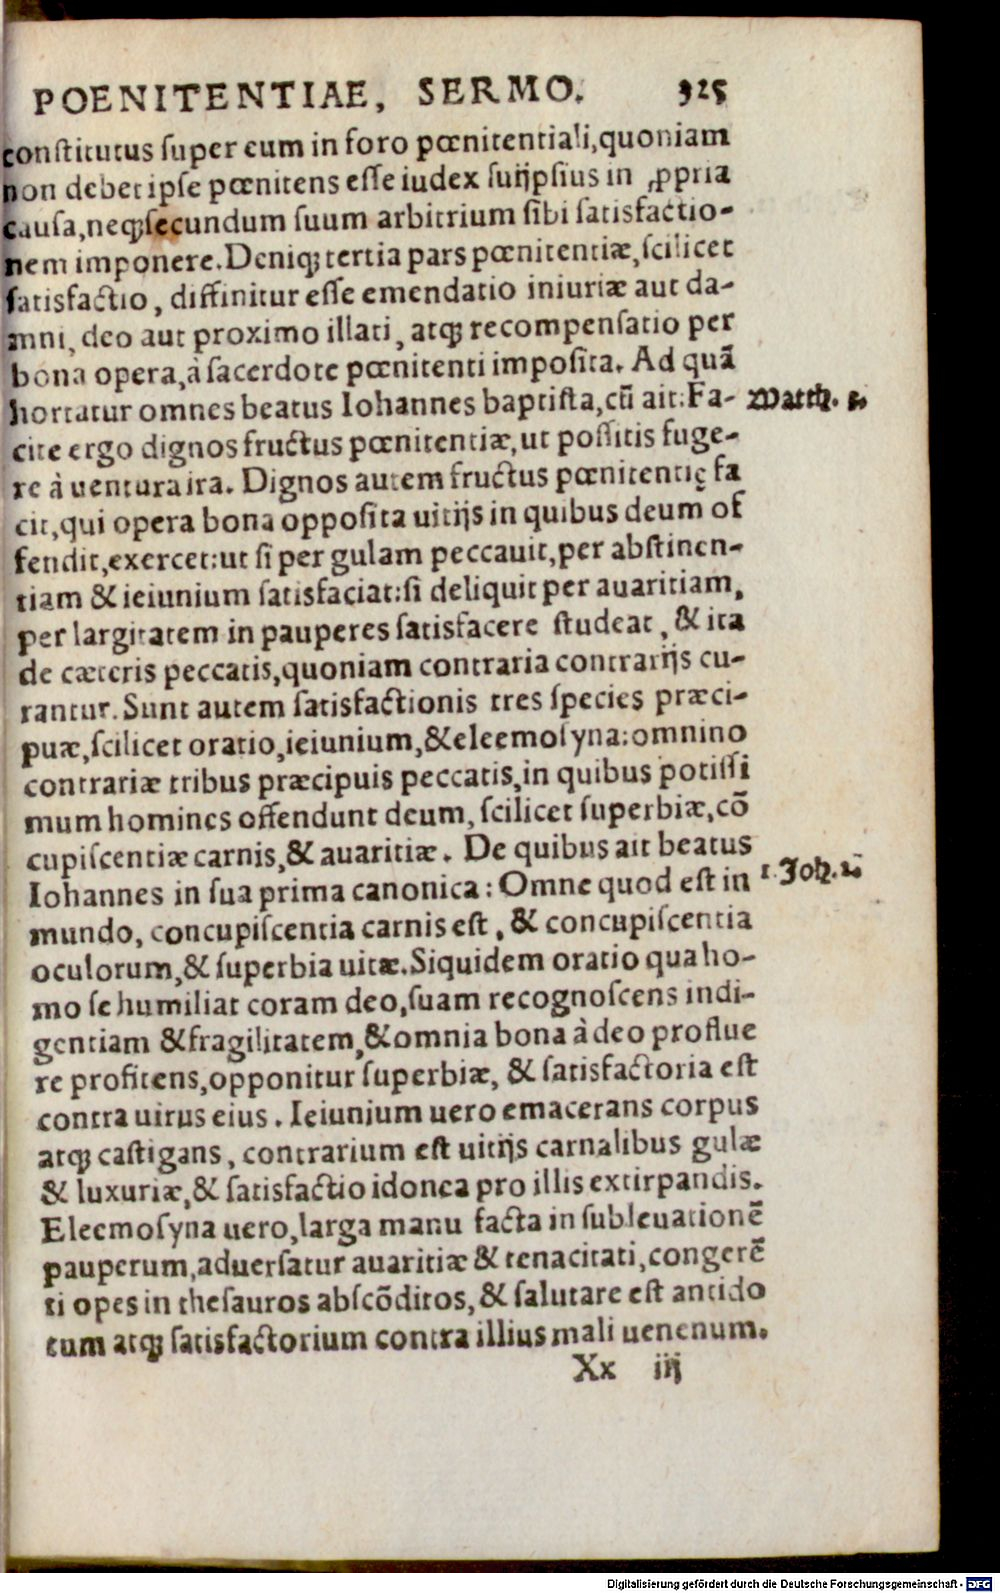 POENITENTIAE, SERMO. 325
constitutus ſuper eum in foro pœnitentiali, quoniam
non debet ipſe pœnitens eſſe iudex ſuiipſius in ꝓpria
cauſa, neqꝫ ſecundum ſuum arbitrium ſibi ſatisfactio-
nem imponere. Deniqꝫ tertia pars pœnitentiæ, ſcilicet
ſatisfactio, diffinitur eſſe emendatio iniuriæ aut da-
mni, deo aut proximo illati, atqꝫ recompenſatio per
bona opera, à ſacerdote pœnitenti impoſita. Ad quã
hortatur omnes beatus Iohannes baptiſta, cũ ait: Fa- Matth. 3.
cite ergo dignos fructus pœnitentiæ, ut poſſitis fuge-
re à uentura ira. Dignos autem fructus pœnitentię fa
cit, qui opera bona oppoſita uitijs in quibus deum of
fendit, exercet: ut ſi per gulam peccauit, per abſtinen-
tiam & ieiunium ſatisfaciat: ſi deliquit per auaritiam,
per largitatem in pauperes ſatisfacere ſtudeat, & ita
de cæteris peccatis, quoniam contraria contrarijs cu-
rantur. Sunt autem ſatisfactionis tres ſpecies præci-
puæ, ſcilicet oratio, ieiunium, & eleemoſyna: omnino
contrariæ tribus præcipuis peccatis, in quibus potiſſi
mum homines offendunt deum, ſcilicet ſuperbiæ, cõ
cupiſcentiæ carnis, & auaritiæ. De quibus ait beatus
Iohannes in ſua prima canonica: Omne quod eſt in 1. Joh. 2.
mundo, concupiſcentia carnis eſt, & concupiſcentia
oculorum, & ſuperbia uitæ. Siquidem oratio qua ho-
mo ſe humiliat coram deo, ſuam recognoſcens indi-
gentiam & fragilitatem, & omnia bona à deo proflue
re profitens, opponitur ſuperbiæ, & ſatisfactoria eſt
contra uirus eius. Ieiunium uero emacerans corpus
atqꝫ caſtigans, contrarium eſt uitijs carnalibus gulæ
& luxuriæ, & ſatisfactio idonea pro illis extirpandis.
Eleemoſyna uero, larga manu facta in ſubleuationẽ
pauperum, aduerſatur auaritiæ & tenacitati, congerẽ
ti opes in theſauros abſcõditos, & ſalutare eſt antido
tum atqꝫ ſatisfactorium contra illius mali uenenum.
Xx iij
Digitalisierung gefördert durch die Deutsche Forschungsgemeinschaft - DFG